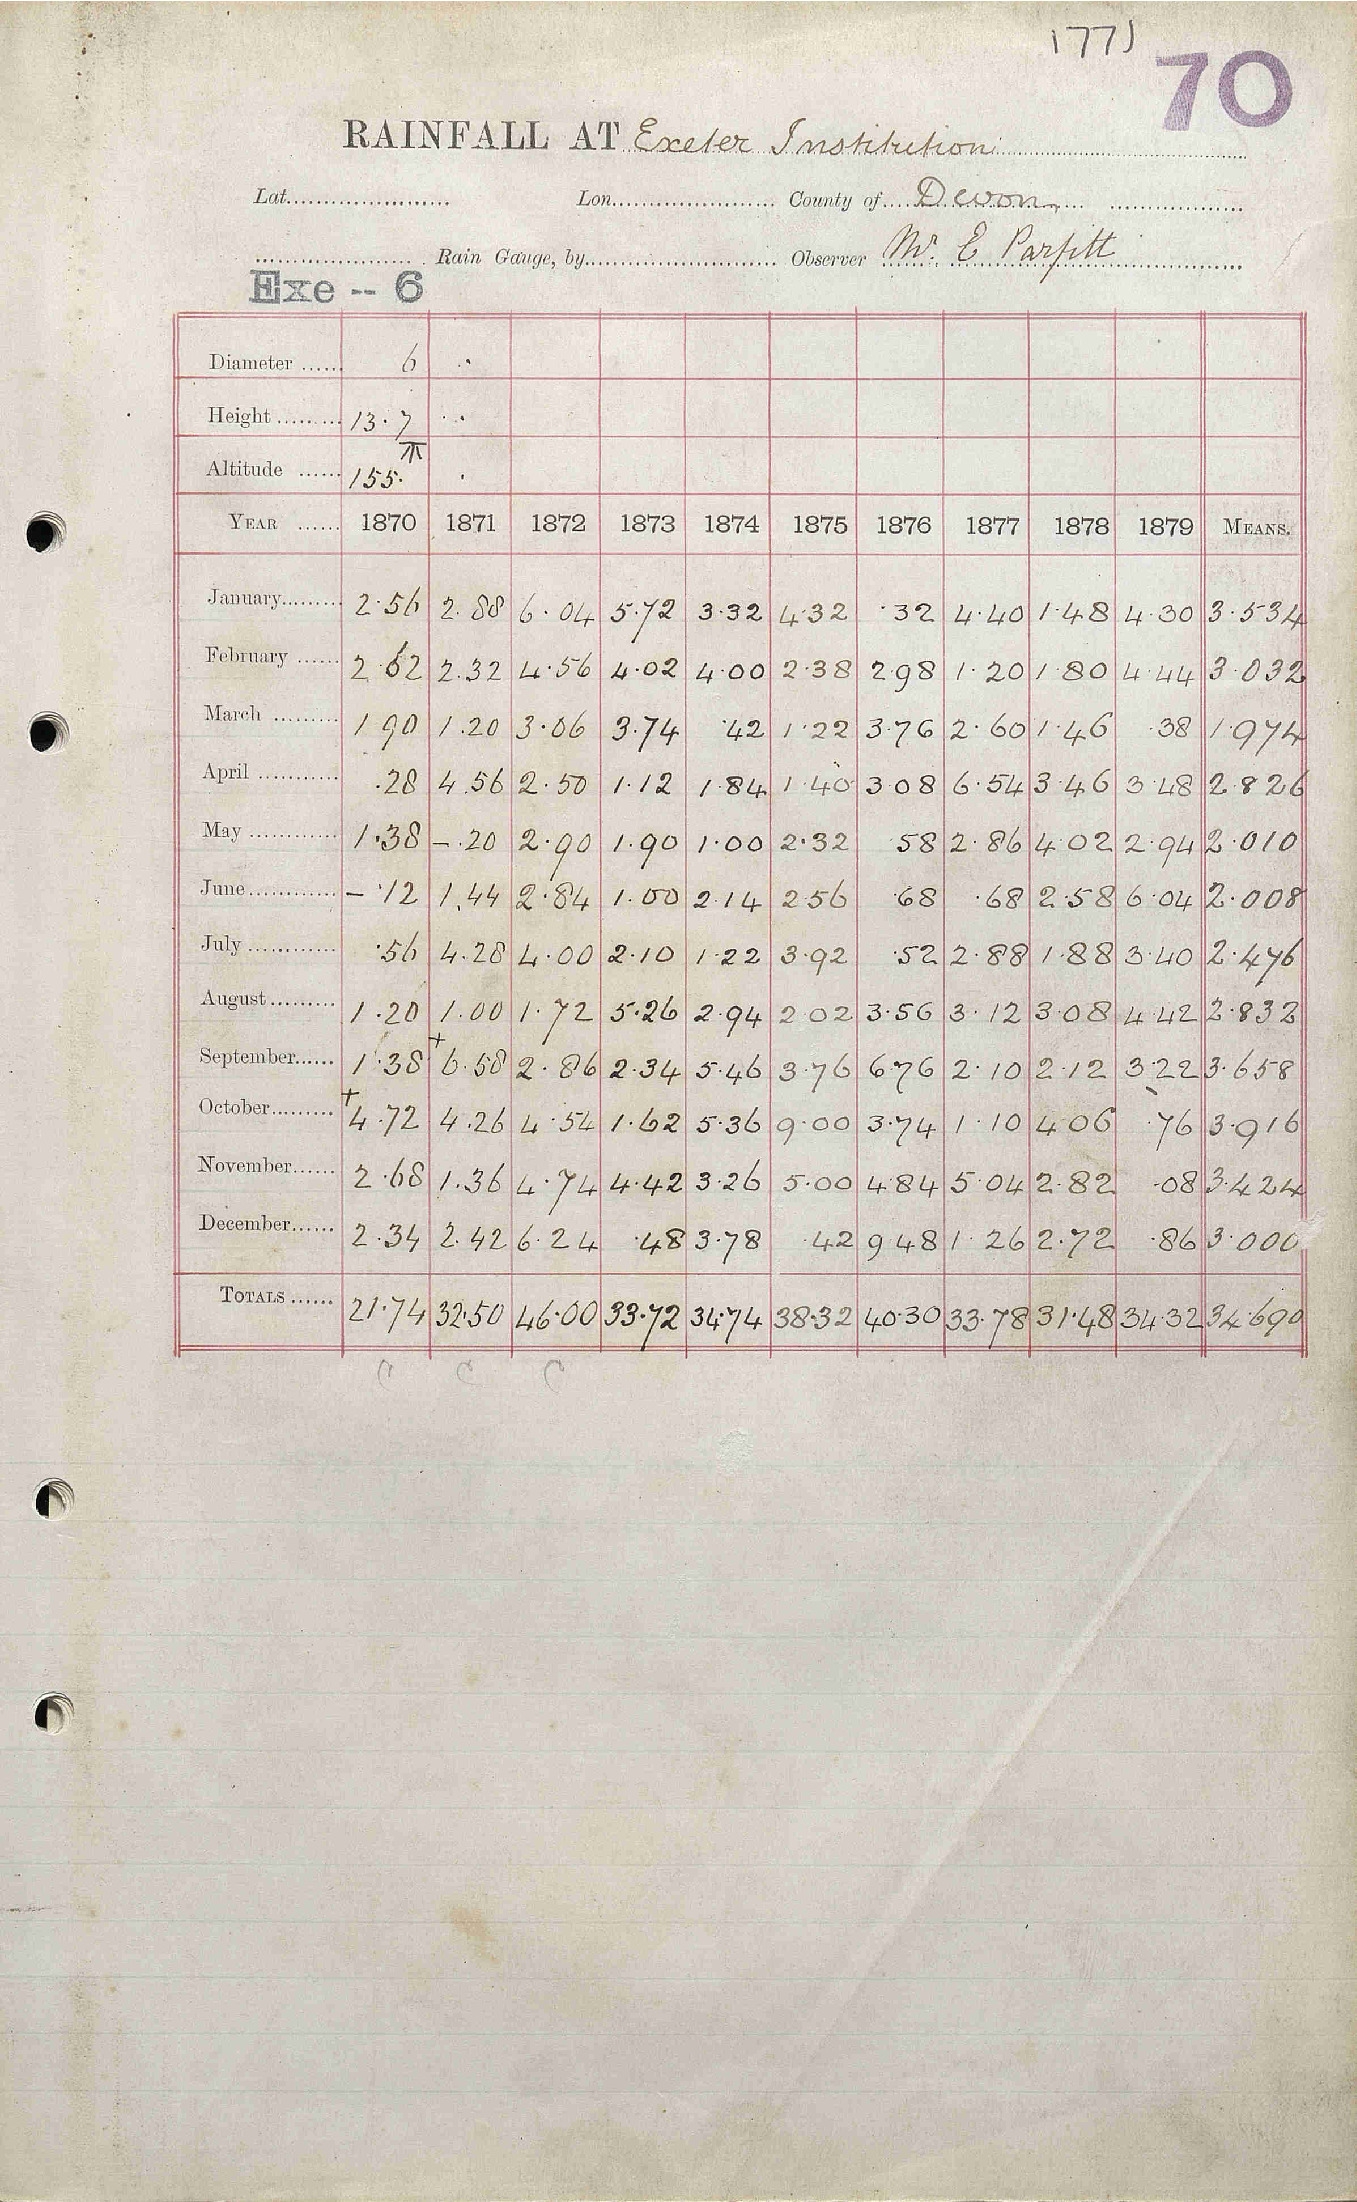 1771
70
RAINFALL AT Exeter Institution
Lat. Lon. County of Devon
Rain Gauge, by Observer Mr. E Parfitt
Exe -- 6
Diameter 6
Height 13.7
Altitude 155.
YEAR 1870 1871 1872 1873 1874 1875 1876 1877 1878 1879 MEANS.
January 2.56 2.88 6.04 5.72 3.32 4.32 .32 4.40 1.48 4.30 3.534
February 2.62 2.32 4.56 4.02 4.00 2.38 2.98 1.20 1.80 4.44 3.032
March 1.90 1.20 3.06 3.74 .42 1.22 3.76 2.60 1.46 .38 1.974
April .28 4.56 2.50 1.12 1.84 1.40 3.08 6.54 3.46 3.48 2.826
May 1.38 -.20 2.90 1.90 1.00 2.32 .58 2.86 4.02 2.94 2.010
June -.12 1.44 2.84 1.00 2.14 2.56 .68 .68 2.58 6.04 2.008
July .56 4.28 4.00 2.10 1.22 3.92 .52 2.88 1.88 3.40 2.476
August 1.20 1.00 1.72 5.26 2.94 2.02 3.56 3.12 3.08 4.42 2.832
September 1.38 +6.58 2.86 2.34 5.46 3.76 6.76 2.10 2.12 3.22 3.658
October +4.72 4.26 4.54 1.62 5.36 9.00 3.74 1.10 4.06 .76 3.916
November 2.68 1.36 4.74 4.42 3.26 5.00 4.84 5.04 2.82 .08 3.424
December 2.34 2.42 6.24 .48 3.78 .42 9.48 1.26 2.72 .86 3.000
TOTALS 21.74 32.50 46.00 33.72 34.74 38.32 40.30 33.78 31.48 34.32 34.690
C C C